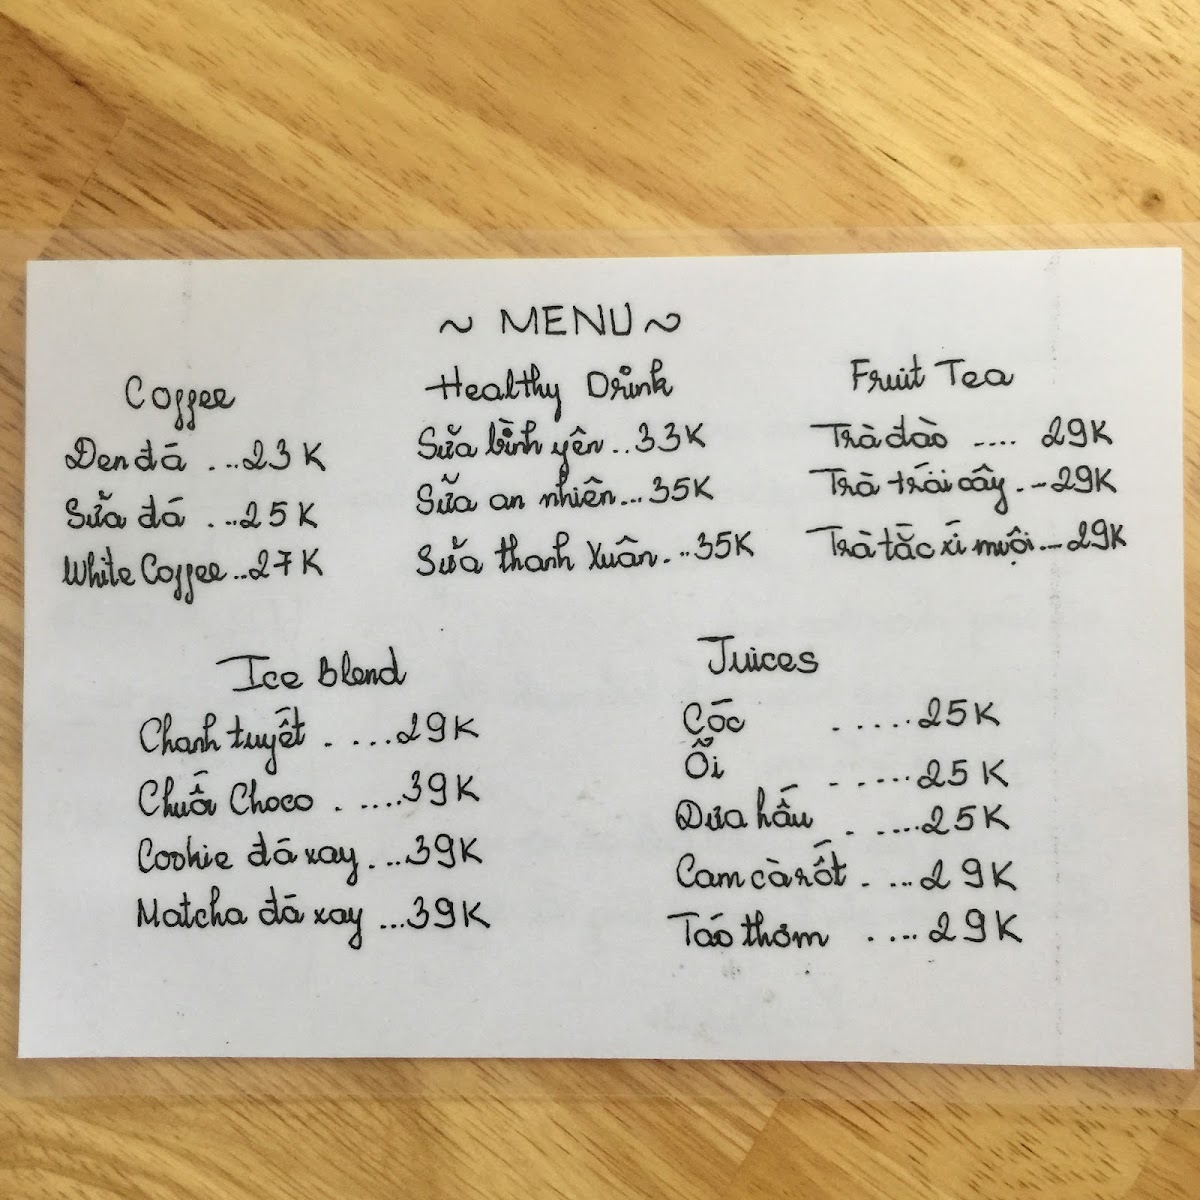 ~ MENU ~
Coffee
Đen đá ...23K
Sữa đá ...25K
White Coffee..27K
Healthy Drink
Sữa bình yên..33K
Sữa an nhiên...35K
Sữa thanh xuân...35K
Fruit Tea
Trà đào .... 29K
Trà trái cây.--29K
Trà tắc xí muội.--29K
Ice Blend
Chanh tuyết ....29K
Chuối Choco .....39K
Cookie đá xay...39K
Matcha đá xay ...39K
Juices
Cóc .....25K
Ổi .....25K
Dưa hấu ....25K
Cam cà rốt ....29K
Táo thơm ....29K